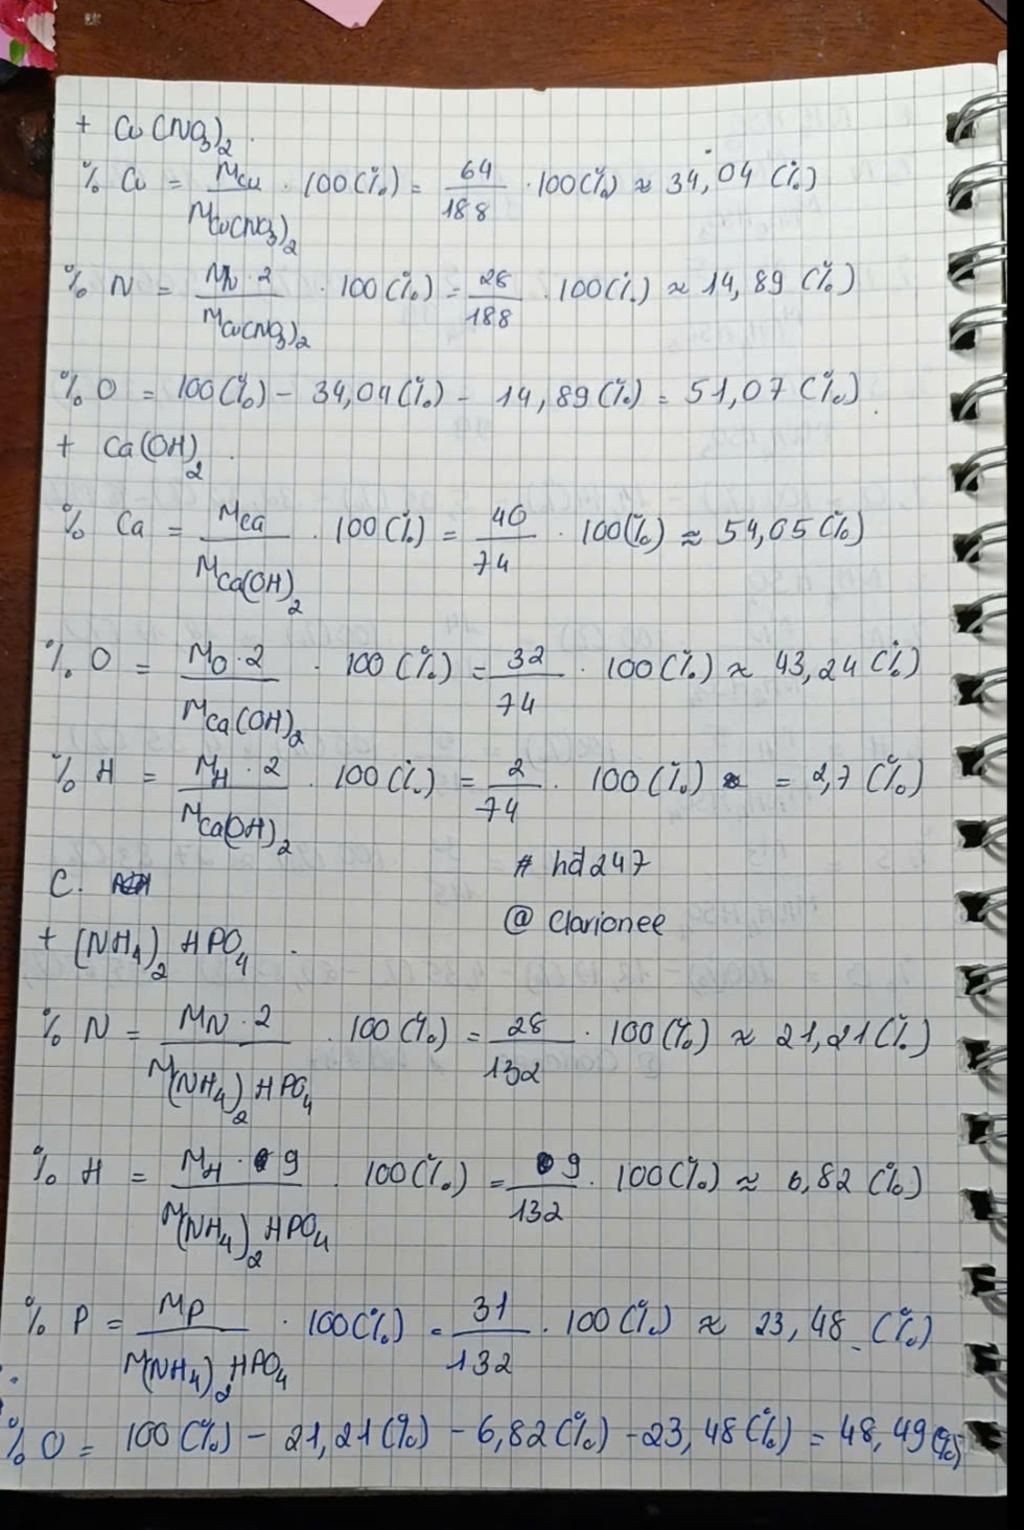 + Cu(NO3)2.
% Cu = MCu / MCu(NO3)2 · 100(%) = 64/188 · 100(%) ≈ 34,04 (%)
% N = MN · 2 / MCu(NO3)2 · 100(%) = 28/188 · 100(%) ≈ 14,89 (%)
% O = 100(%) - 34,04(%) - 14,89(%) = 51,07 (%)
+ Ca(OH)2.
% Ca = MCa / MCa(OH)2 · 100(%) = 40/74 · 100(%) ≈ 54,05 (%)
% O = MO · 2 / MCa(OH)2 · 100(%) = 32/74 · 100(%) ≈ 43,24 (%)
% H = MH · 2 / MCa(OH)2 · 100(%) = 2/74 · 100(%) = 2,7 (%)
# hđ247
C.
@ Clarionee
+ (NH4)2 HPO4.
% N = MN · 2 / M(NH4)2 HPO4 · 100(%) = 28/132 · 100(%) ≈ 21,21 (%)
% H = MH · 9 / M(NH4)2 HPO4 · 100(%) = 9/132 · 100(%) ≈ 6,82 (%)
% P = MP / M(NH4)2 HPO4 · 100(%) = 31/132 · 100(%) ≈ 23,48 (%)
% O = 100(%) - 21,21(%) - 6,82(%) - 23,48(%) = 48,49(%)